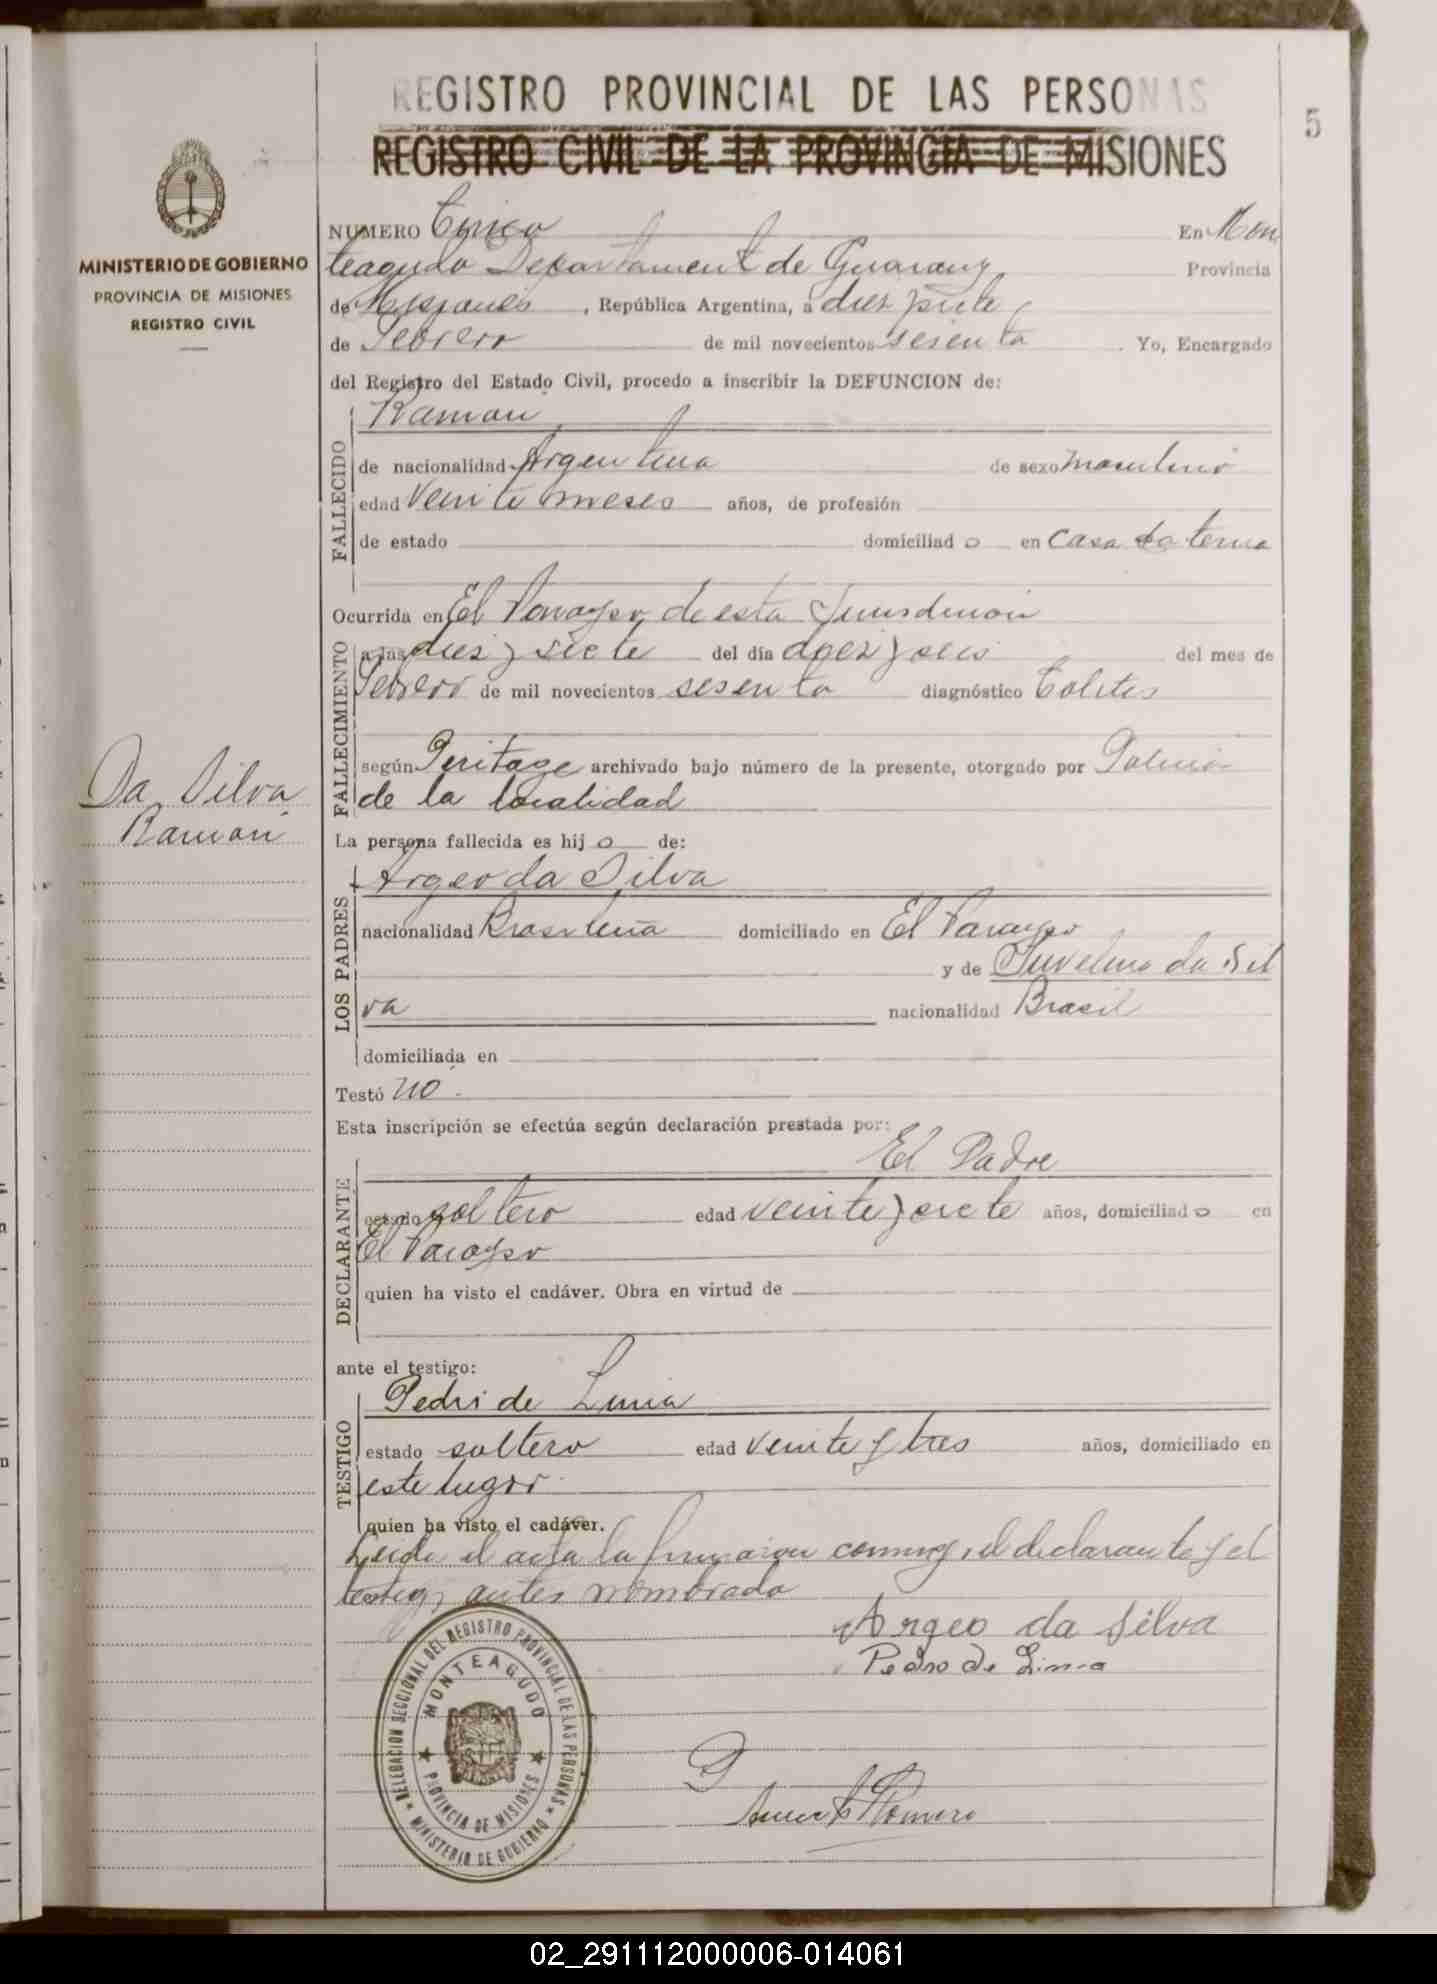 REGISTRO PROVINCIAL DE LAS PERSONAS
REGISTRO CIVIL DE LA PROVINCIA DE MISIONES
5
MINISTERIO DE GOBIERNO
PROVINCIA DE MISIONES
REGISTRO CIVIL
NUMERO Cinco En Mon
teagudo Departament de Guarany Provincia
de Misiones , República Argentina, a diez siete
de Febrero de mil novecientos sesenta . Yo, Encargado
del Registro del Estado Civil, procedo a inscribir la DEFUNCION de:
FALLECIDO
Ramon
de nacionalidad Argentina de sexo masculino
edad veinte meses años, de profesión
de estado domiciliad o en casa
Ocurrida en El Parayso de esta Jurisdicion
FALLECIMIENTO
a las diez y siete del día diez y seis del mes de
Febrero de mil novecientos sesenta diagnóstico Colites
según Peritage archivado bajo número de la presente, otorgado por Policia
de la localidad
Da Silva
Ramon
La persona fallecida es hij o de:
LOS PADRES
Argeo da Silva
nacionalidad Brasileña domiciliado en El Parayso
y de da Sil
va nacionalidad Brasil
domiciliada en
Testó no.
Esta inscripción se efectúa según declaración prestada por:
El Padre
DECLARANTE
estado soltero edad veinte y siete años, domiciliad o en
El Parayso
quien ha visto el cadáver. Obra en virtud de
ante el testigo:
TESTIGO
Pedri de Lima
estado soltero edad veinte y tres años, domiciliado en
este lugar.
quien ha visto el cadáver.
Leida el acta la conmigo, el declarante y el
testigo antes nombrado
Argeo da Silva
Pedro de Lima
DELEGACION SECCIONAL DEL REGISTRO PROVINCIAL DE LAS PERSONAS
MONTEAGUDO
PROVINCIA DE MISIONES
MINISTERIO DE GOBIERNO
Romero
02_291112000006-014061